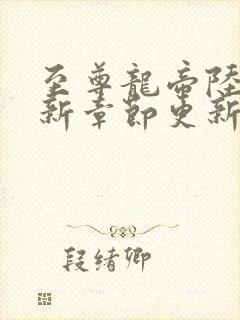 至尊龍帝陸
新章節更新
段绪卿